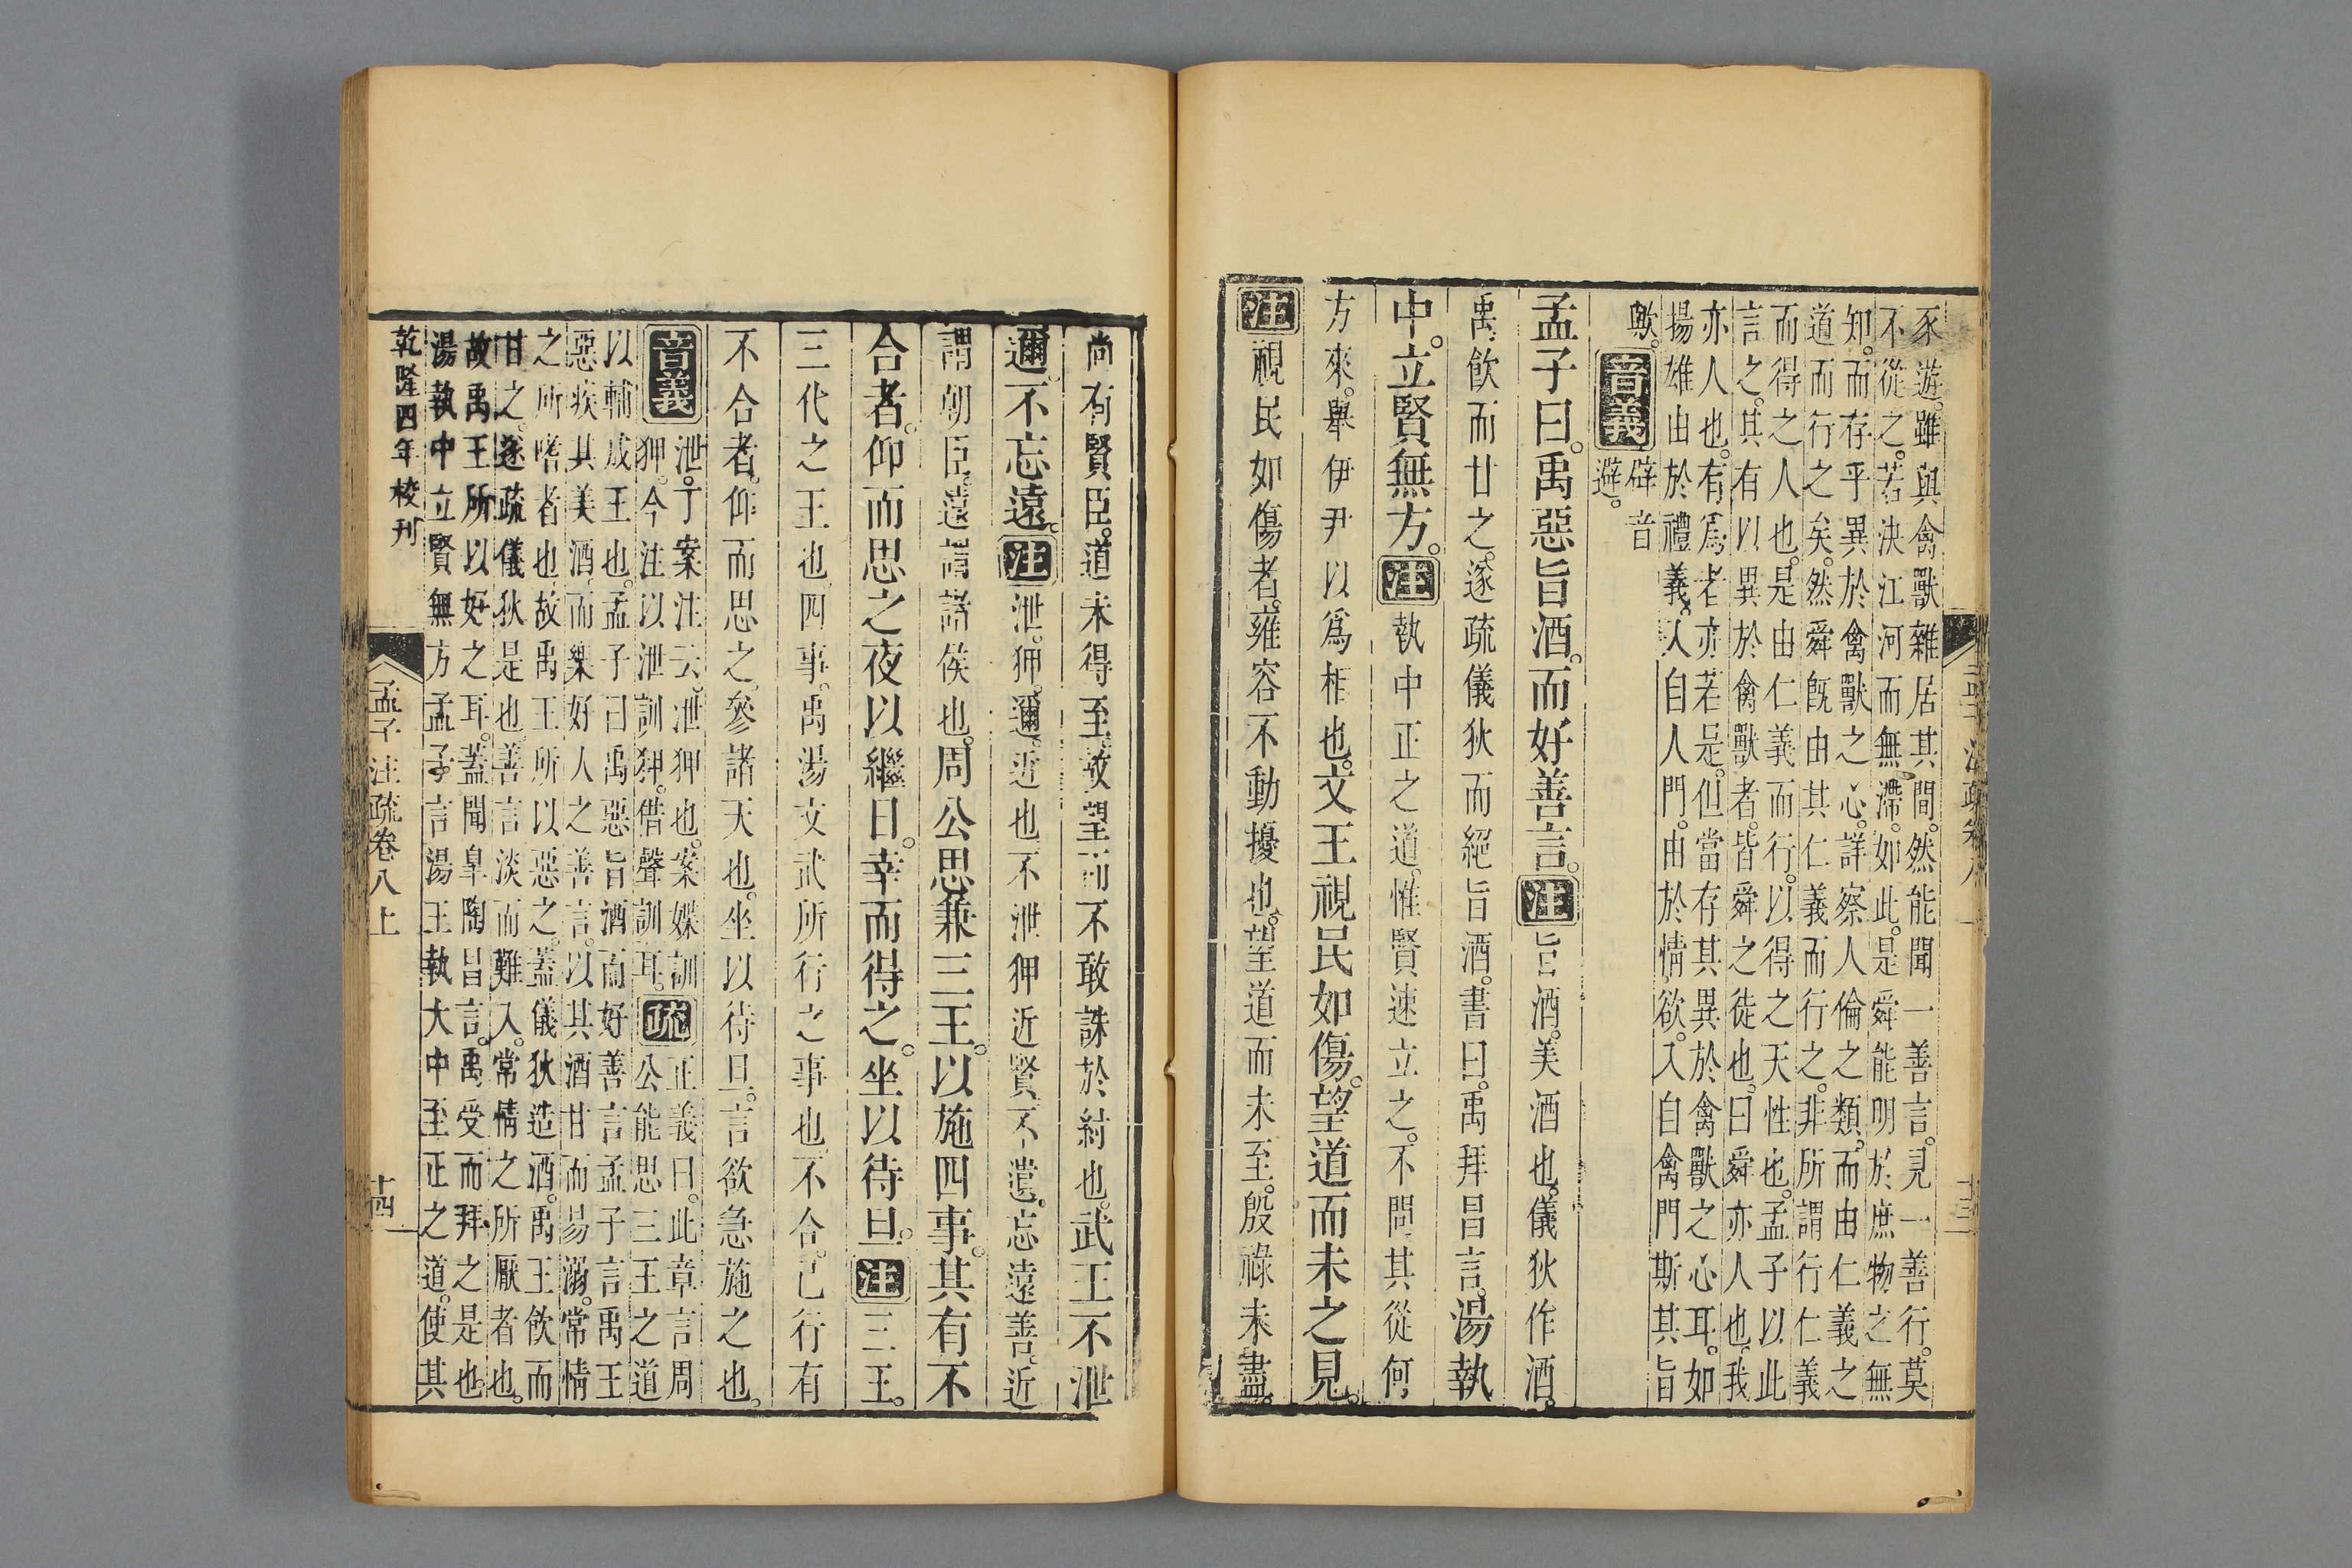 豕遊。雖與禽獸雜居其間。然能聞一善言。見一善行。莫
不從之。若決江河而無滯。如此。是舜能明於庶物之無
知。而存乎異於禽獸之心。詳察人倫之類。而由仁義之
道而行之矣。然舜旣由其仁義而行之。非所謂行仁義
而得之人也。是由仁義而行。以得之天性也。孟子以此
言之。其有以異於禽獸者。皆舜之徒也。曰舜亦人也。我
亦人也。有爲者亦若是。但當存其異於禽獸之心耳。如
揚雄由於禮義。入自人門。由於情欲。入自禽門斯其旨
歟。音義辟音
避。
孟子曰。禹惡旨酒。而好善言。注旨酒。美酒也。儀狄作酒。
禹飲而甘之。遂疏儀狄而絕旨酒。書曰。禹拜昌言。湯執
中。立賢無方。注執中正之道。惟賢速立之。不問其從何
方來。舉伊尹以爲相也。文王視民如傷。望道而未之見。
注視民如傷者。雍容不動擾也。望道而未至。殷祿未盡。
尚有賢臣。道未得至。故望而不敢誅於紂也。武王不泄
邇。不忘遠。注泄。狎。邇。近也。不泄狎近賢。不遺忘遠善。近
謂朝臣。遠謂諸侯也。周公思兼三王。以施四事。其有不
合者。仰而思之。夜以繼日。幸而得之。坐以待旦。注三王。
三代之王也。四事。禹湯文武所行之事也。不合。己行有
不合者。仰而思之。參諸天也。坐以待旦。言欲急施之也。
音義泄。丁案注云。泄狎也。案媟訓
狎。今注以泄訓狎。借聲訓耳。疏正義曰。此章言周
公能思三王之道
以輔成王也。孟子曰禹惡旨酒而好善言孟子言禹王
惡疾其美酒。而樂好人之善言。以其酒甘而易溺。常情
之所嗜者也。故禹王所以惡之。蓋儀狄造酒。禹王飲而
甘之。遂疏儀狄是也。善言淡而難入。常情之所厭者也。
故禹王所以好之耳。蓋聞皐陶昌言。禹受而拜之是也。
湯執中立賢無方孟子言湯王執大中至正之道。使其
乾隆四年校刊
孟子注疏卷八上
十四